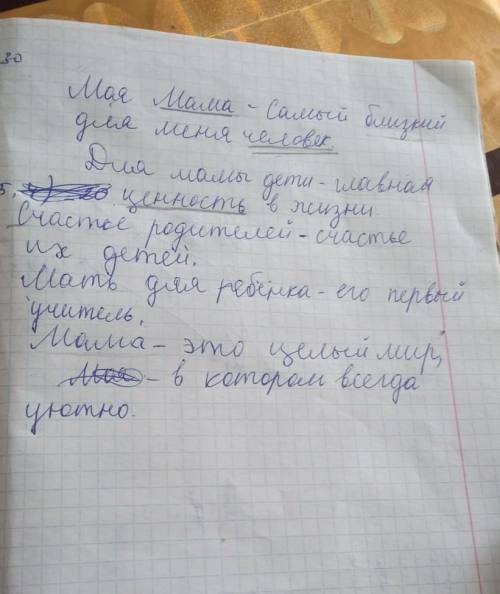 30
Моя Мама - Самый близкий
для меня человек.
Для мамы дети - главная
5, ценность в жизни.
Счастье родителей - счастье
их детей.
Мать для ребёнка - его первый
учитель.
Мама - это целый мир,
- в котором всегда
уютно.